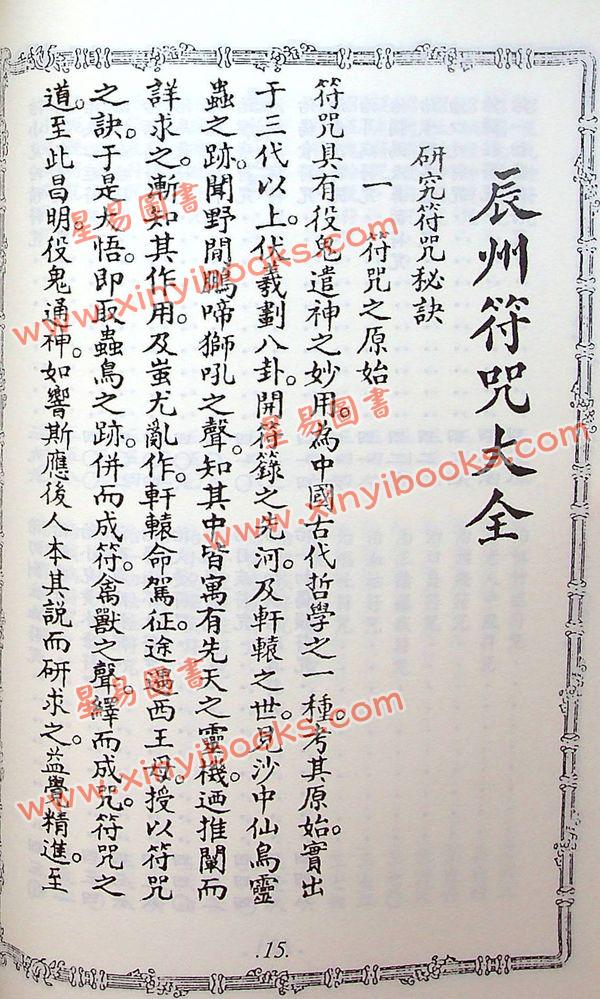 辰州符咒大全
研究符咒秘訣
一　符咒之原始
符咒具有役鬼遣神之妙用。為中國古代哲學之一種。考其原始。實出
于三代以上。伏羲劃八卦。開符籙之先河。及軒轅之世。見沙中仙鳥靈
蟲之跡。聞野間鵬啼獅吼之聲。知其中皆寓有先天之靈機。迺推闡而
詳求之。漸知其作用。及蚩尤亂作。軒轅命駕征途。遇西王母。授以符咒
之訣。于是大悟。即取蟲鳥之跡。併而成符。禽獸之聲。繹而成咒。符咒之
道。至此昌明。役鬼通神。如響斯應。後人本其說而研求之。益覺精進。至
.15.
星易圖書
www.xinyibooks.com
星易圖書
www.xinyibooks.com
星易圖書
www.xinyibooks.com